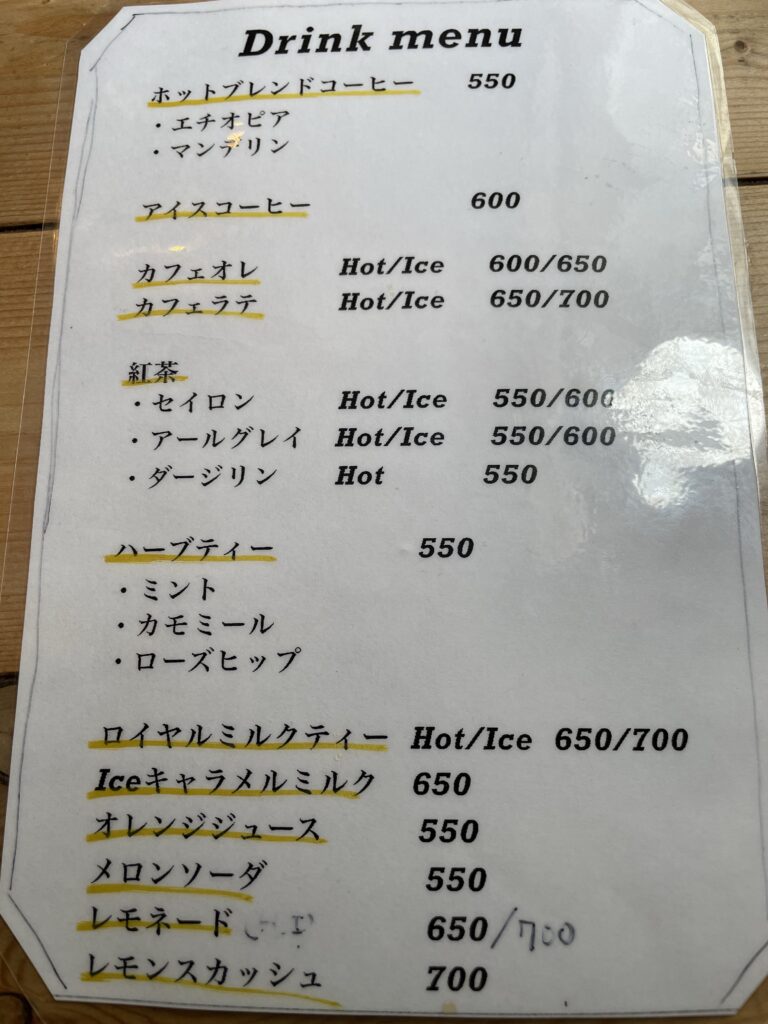 Drink menu
ホットブレンドコーヒー 550
・エチオピア
・マンデリン
アイスコーヒー 600
カフェオレ Hot/Ice 600/650
カフェラテ Hot/Ice 650/700
紅茶
・セイロン Hot/Ice 550/600
・アールグレイ Hot/Ice 550/600
・ダージリン Hot 550
ハーブティー 550
・ミント
・カモミール
・ローズヒップ
ロイヤルミルクティー Hot/Ice 650/700
Iceキャラメルミルク 650
オレンジジュース 550
メロンソーダ 550
レモネード 650/700
レモンスカッシュ 700